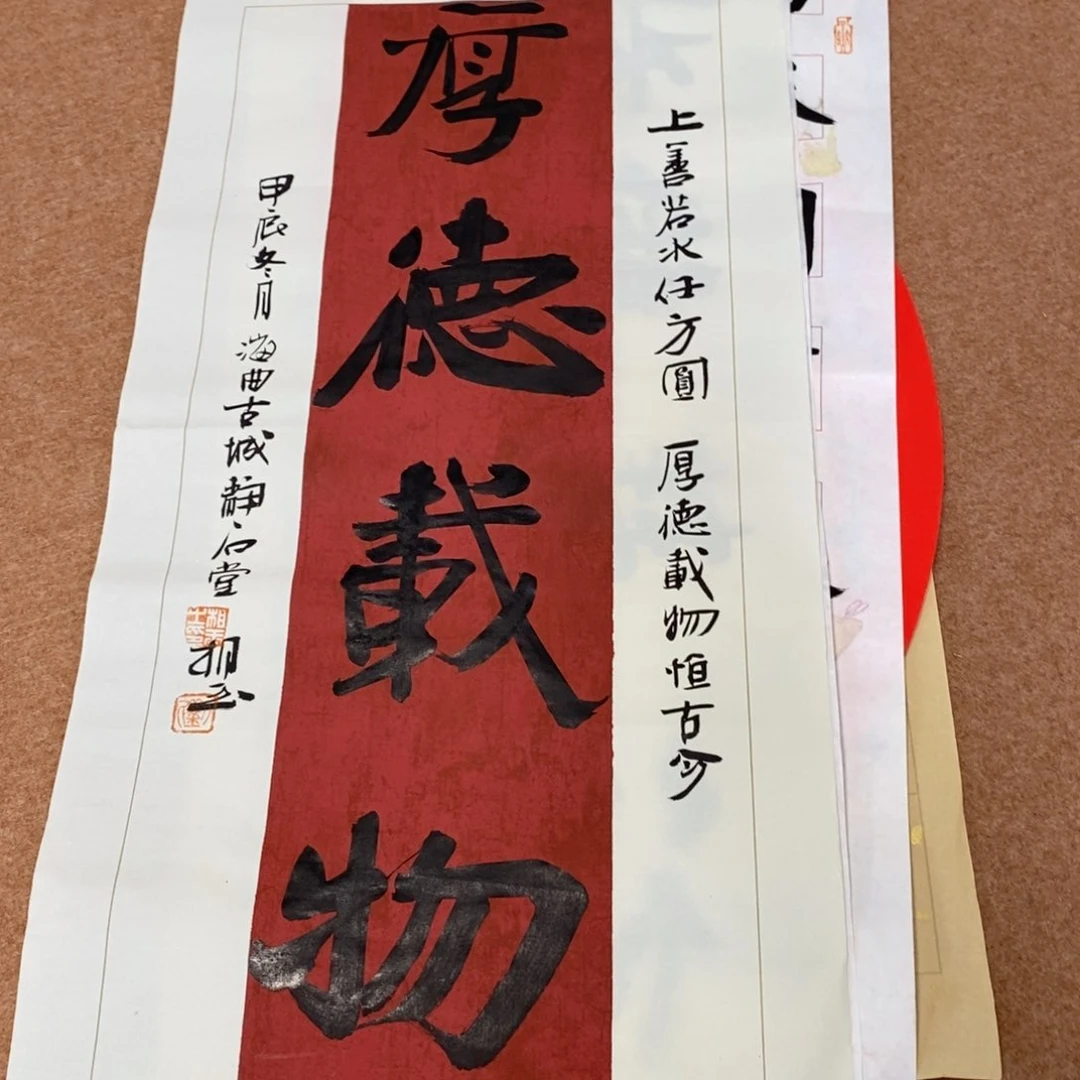 上善若水任方圓 厚德載物恒古今
厚德載物
甲辰冬月 海曲古城 石堂